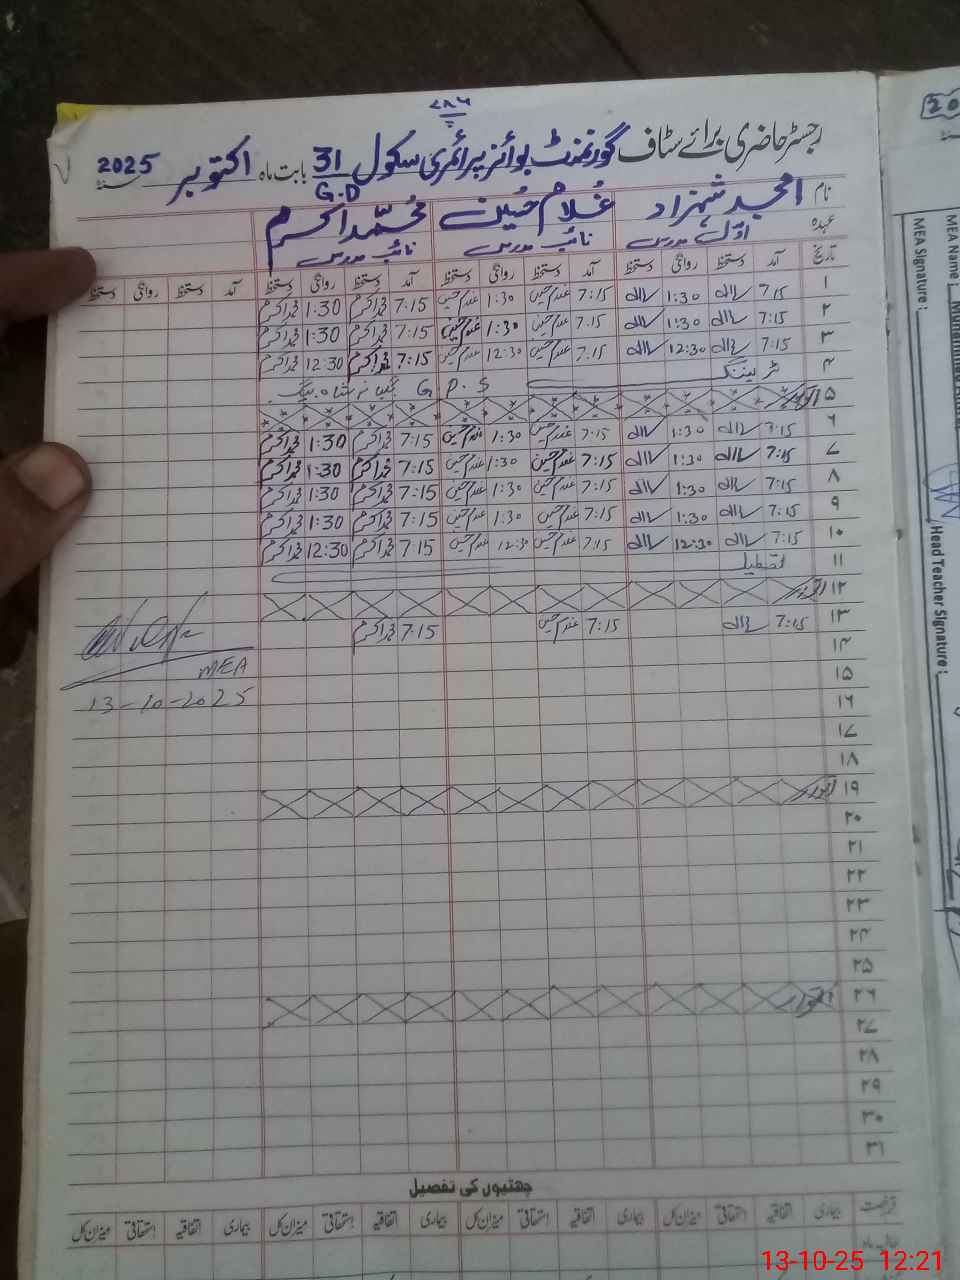 ۷۸۶
رجسٹر حاضری برائے سٹاف گورنمنٹ بوائز پرائمری سکول 31 G.D بابت ماہ اکتوبر 2025
نام امجد شہزاد غلام حسین محمد اکرم
عہدہ اول مدرس نائب مدرس نائب مدرس
تاریخ آمد دستخط روانگی دستخط آمد دستخط روانگی دستخط آمد دستخط روانگی دستخط آمد دستخط روانگی دستخط
۱ 7:15 1:30 7:15 غلام حسین 1:30 غلام حسین 7:15 محمد اکرم 1:30 محمد اکرم
۲ 7:15 1:30 7:15 غلام حسین 1:30 غلام حسین 7:15 محمد اکرم 1:30 محمد اکرم
۳ 7:15 12:30 7:15 غلام حسین 12:30 غلام حسین 7:15 محمد اکرم 12:30 محمد اکرم
۴ ٹریننگ G.P.S
۵ اتوار
۶ 7:15 1:30 7:15 غلام حسین 1:30 غلام حسین 7:15 محمد اکرم 1:30 محمد اکرم
۷ 7:15 1:30 7:15 غلام حسین 1:30 غلام حسین 7:15 محمد اکرم 1:30 محمد اکرم
۸ 7:15 1:30 7:15 غلام حسین 1:30 غلام حسین 7:15 محمد اکرم 1:30 محمد اکرم
۹ 7:15 1:30 7:15 غلام حسین 1:30 غلام حسین 7:15 محمد اکرم 1:30 محمد اکرم
۱۰ 7:15 12:30 7:15 غلام حسین 12:30 غلام حسین 7:15 محمد اکرم 12:30 محمد اکرم
۱۱ تعطیل
۱۲ اتوار
۱۳ 7:15 7:15 غلام حسین 7:15 محمد اکرم
۱۴
MEA
۱۵
13-10-2025
۱۶
۱۷
۱۸
۱۹ اتوار
۲۰
۲۱
۲۲
۲۳
۲۴
۲۵
۲۶ اتوار
۲۷
۲۸
۲۹
۳۰
۳۱
چھٹیوں کی تفصیل
قسم رخصت بیماری اتفاقیہ استحقاقی میزان کل بیماری اتفاقیہ استحقاقی میزان کل بیماری اتفاقیہ استحقاقی میزان کل بیماری اتفاقیہ استحقاقی میزان کل
20
MEA Name :
MEA Signature :
Head Teacher Signature :
13-10-25 12:21